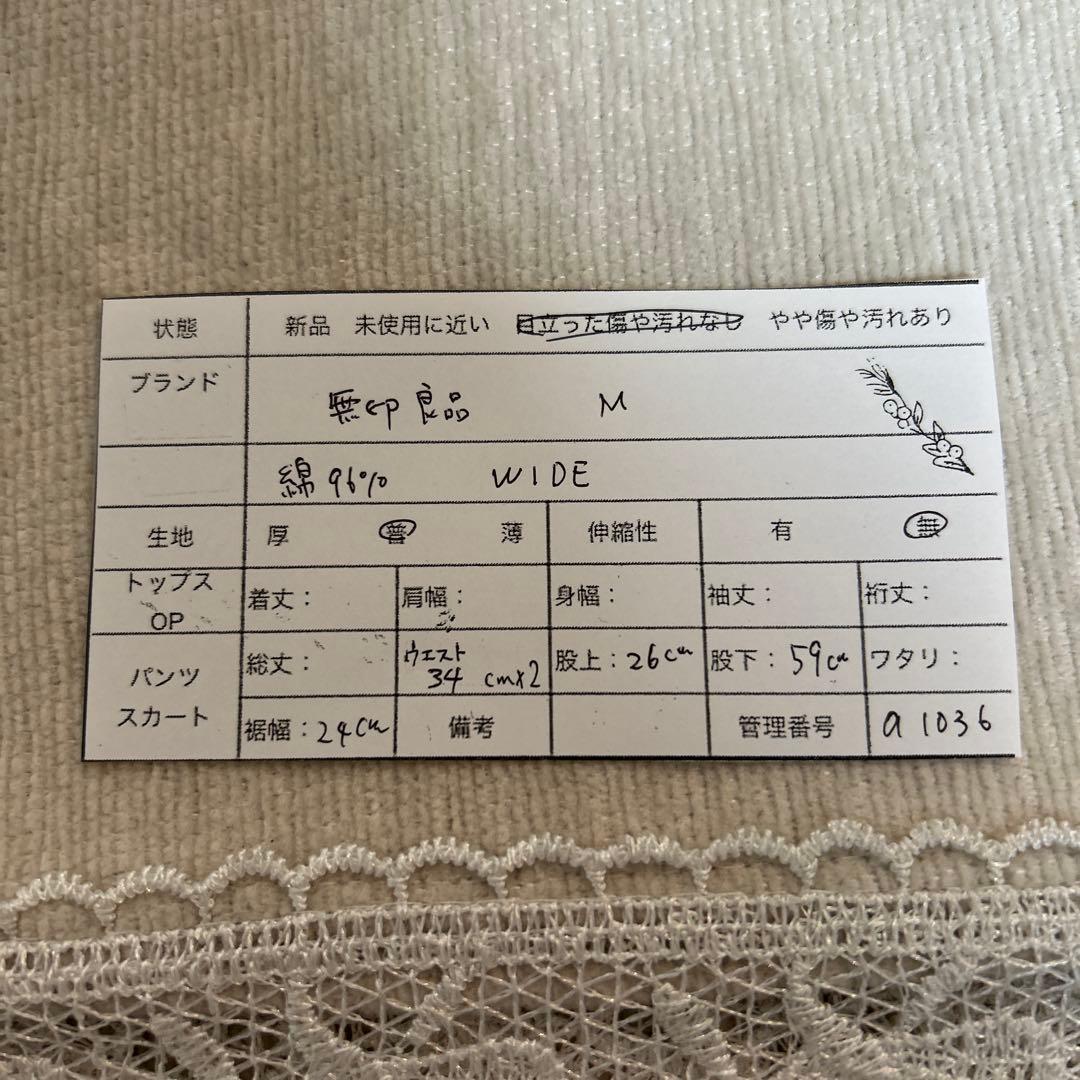 状態 新品 未使用に近い 目立った傷や汚れなし やや傷や汚れあり
ブランド 無印良品 M
綿96% WIDE
生地 厚 普 薄 伸縮性 有 無
トップス OP 着丈： 肩幅： 身幅： 袖丈： 裄丈：
パンツ 総丈： ウエスト 34 cm×2 股上：26cm 股下：59cm ワタリ：
スカート 裾幅：24cm 備考 管理番号 a1036